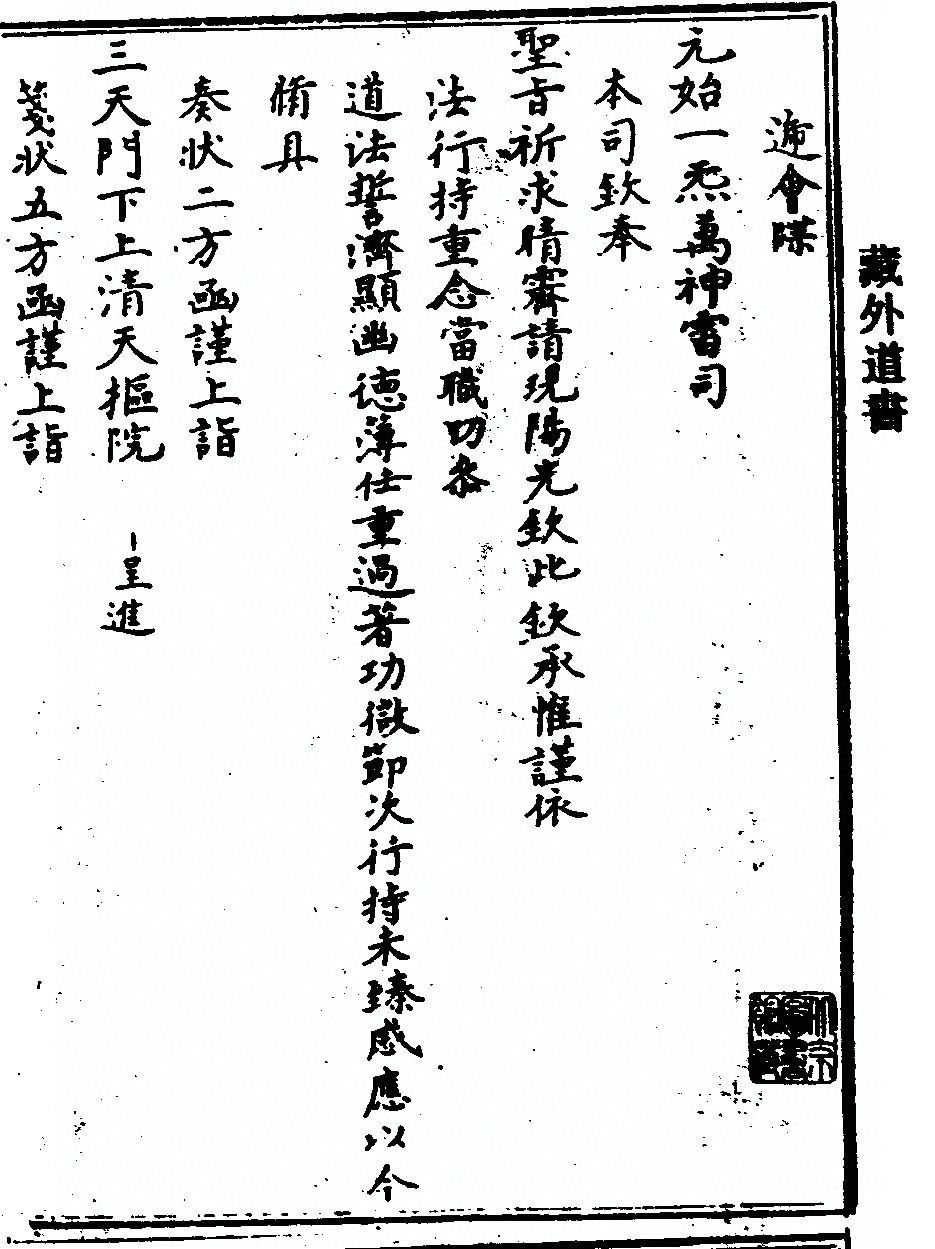 藏外道書
遞會牒
元始一炁萬神雷司
本司欽奉
聖旨祈求晴霽請現陽光欽此欽承惟謹依
法行持重念當職叨忝
道法誓濟顯幽德薄任重過著功微節次行持未臻感應以今
脩具
奏狀二方函謹上詣
三天門下上清天樞院
呈進
箋狀五方函謹上詣